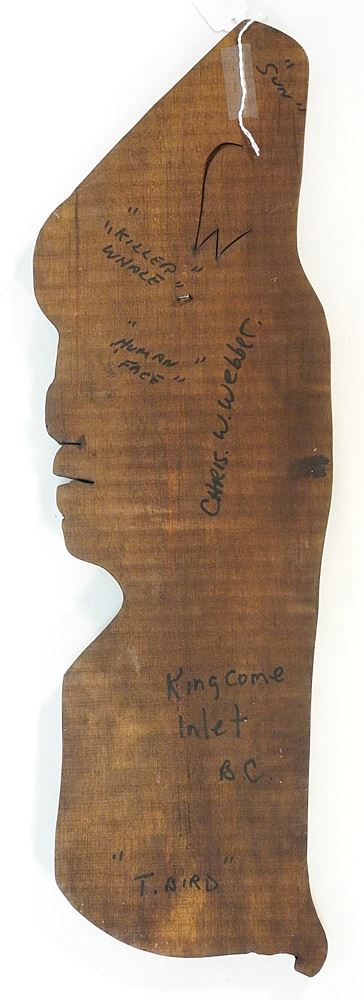 "SUN"
"KILLER
WHALE"
"HUMAN
FACE"
CHRIS. W. Webber.
Kingcome
Inlet
B.C.
"T. BIRD"